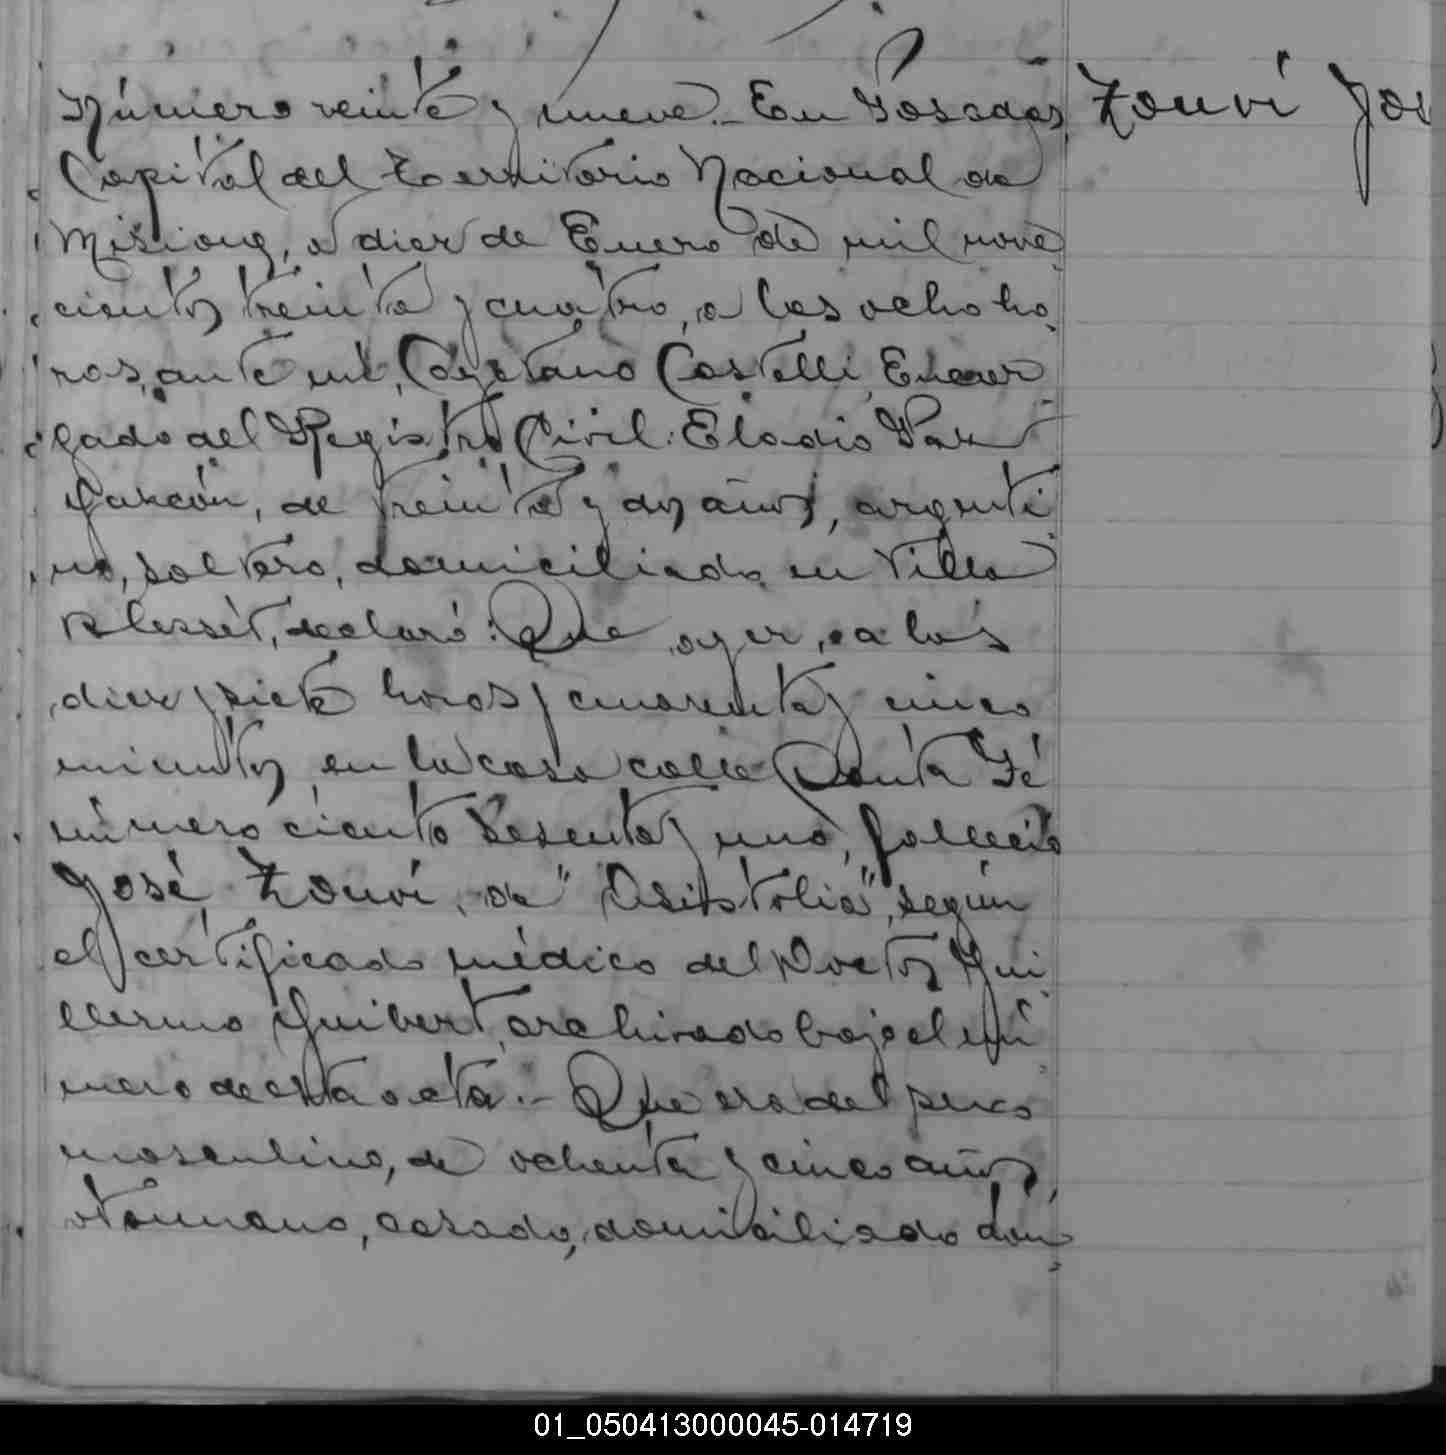 Número veinte y nueve.- En Posadas, Zouvi José
Capital del Territorio Nacional de
Misiones, a diez de Enero de mil nove
cientos treinta y cuatro, a las ocho ho
ras, ante mí, Cayetano Castelli, Encar
gado del Registro Civil: Eladio
Garzón, de treinta y dos años, argenti
no, soltero, domiciliado en Villa
Blosset, declaró: Que ayer, a las
diez y siete horas y cuarenta y cinco
minutos en la casa calle Santa Fé
número ciento sesenta y uno, falleció
José Zouvi, de "Asistolia", según
el certificado médico del Doctor Gui
llermo Guibert, archivado bajo el nú
mero de esta acta.- Que era del sexo
masculino, de ochenta y cinco años,
otomano, casado, domiciliado don
01_050413000045-014719